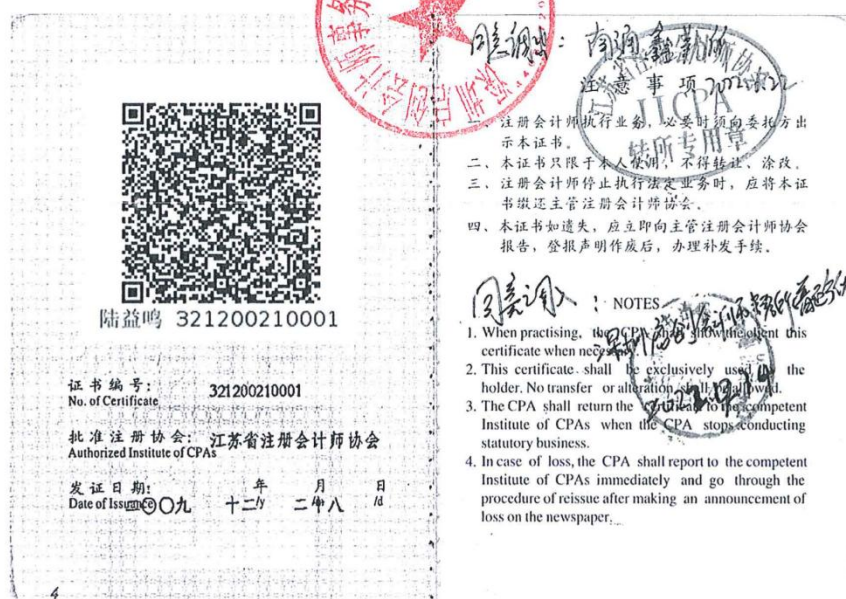 陆益鸣 321200210001
证书编号: 321200210001
No. of Certificate
批准注册协会: 江苏省注册会计师协会
Authorized Institute of CPAs
发证日期: 年 月 日
Date of Issuance /y /m /d
二〇〇九 十二 二十八
4
同意调出: 南通鑫勤所
2022.4.22
江苏省注册会计师协会
JICPA
转所专用章
注意事项
一、注册会计师执行业务,必要时须向委托方出
示本证书。
二、本证书只限于本人使用,不得转让、涂改。
三、注册会计师停止执行法定业务时,应将本证
书缴还主管注册会计师协会。
四、本证书如遗失,应立即向主管注册会计师协会
报告,登报声明作废后,办理补发手续。
同意调入:
2022.12.14
NOTES
1. When practising, the CPA shall show the client this
certificate when necessary.
2. This certificate shall be exclusively used by the
holder. No transfer or alteration shall be allowed.
3. The CPA shall return the certificate to the competent
Institute of CPAs when the CPA stops conducting
statutory business.
4. In case of loss, the CPA shall report to the competent
Institute of CPAs immediately and go through the
procedure of reissue after making an announcement of
loss on the newspaper.